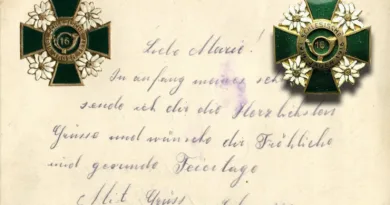 16
16
Liebe Marie!
In anfang meines
sende ich dir die Herzlichsten
Grüsse und wünsche dir Fröhliche
und gesunde Feiertage
Mit Grüss